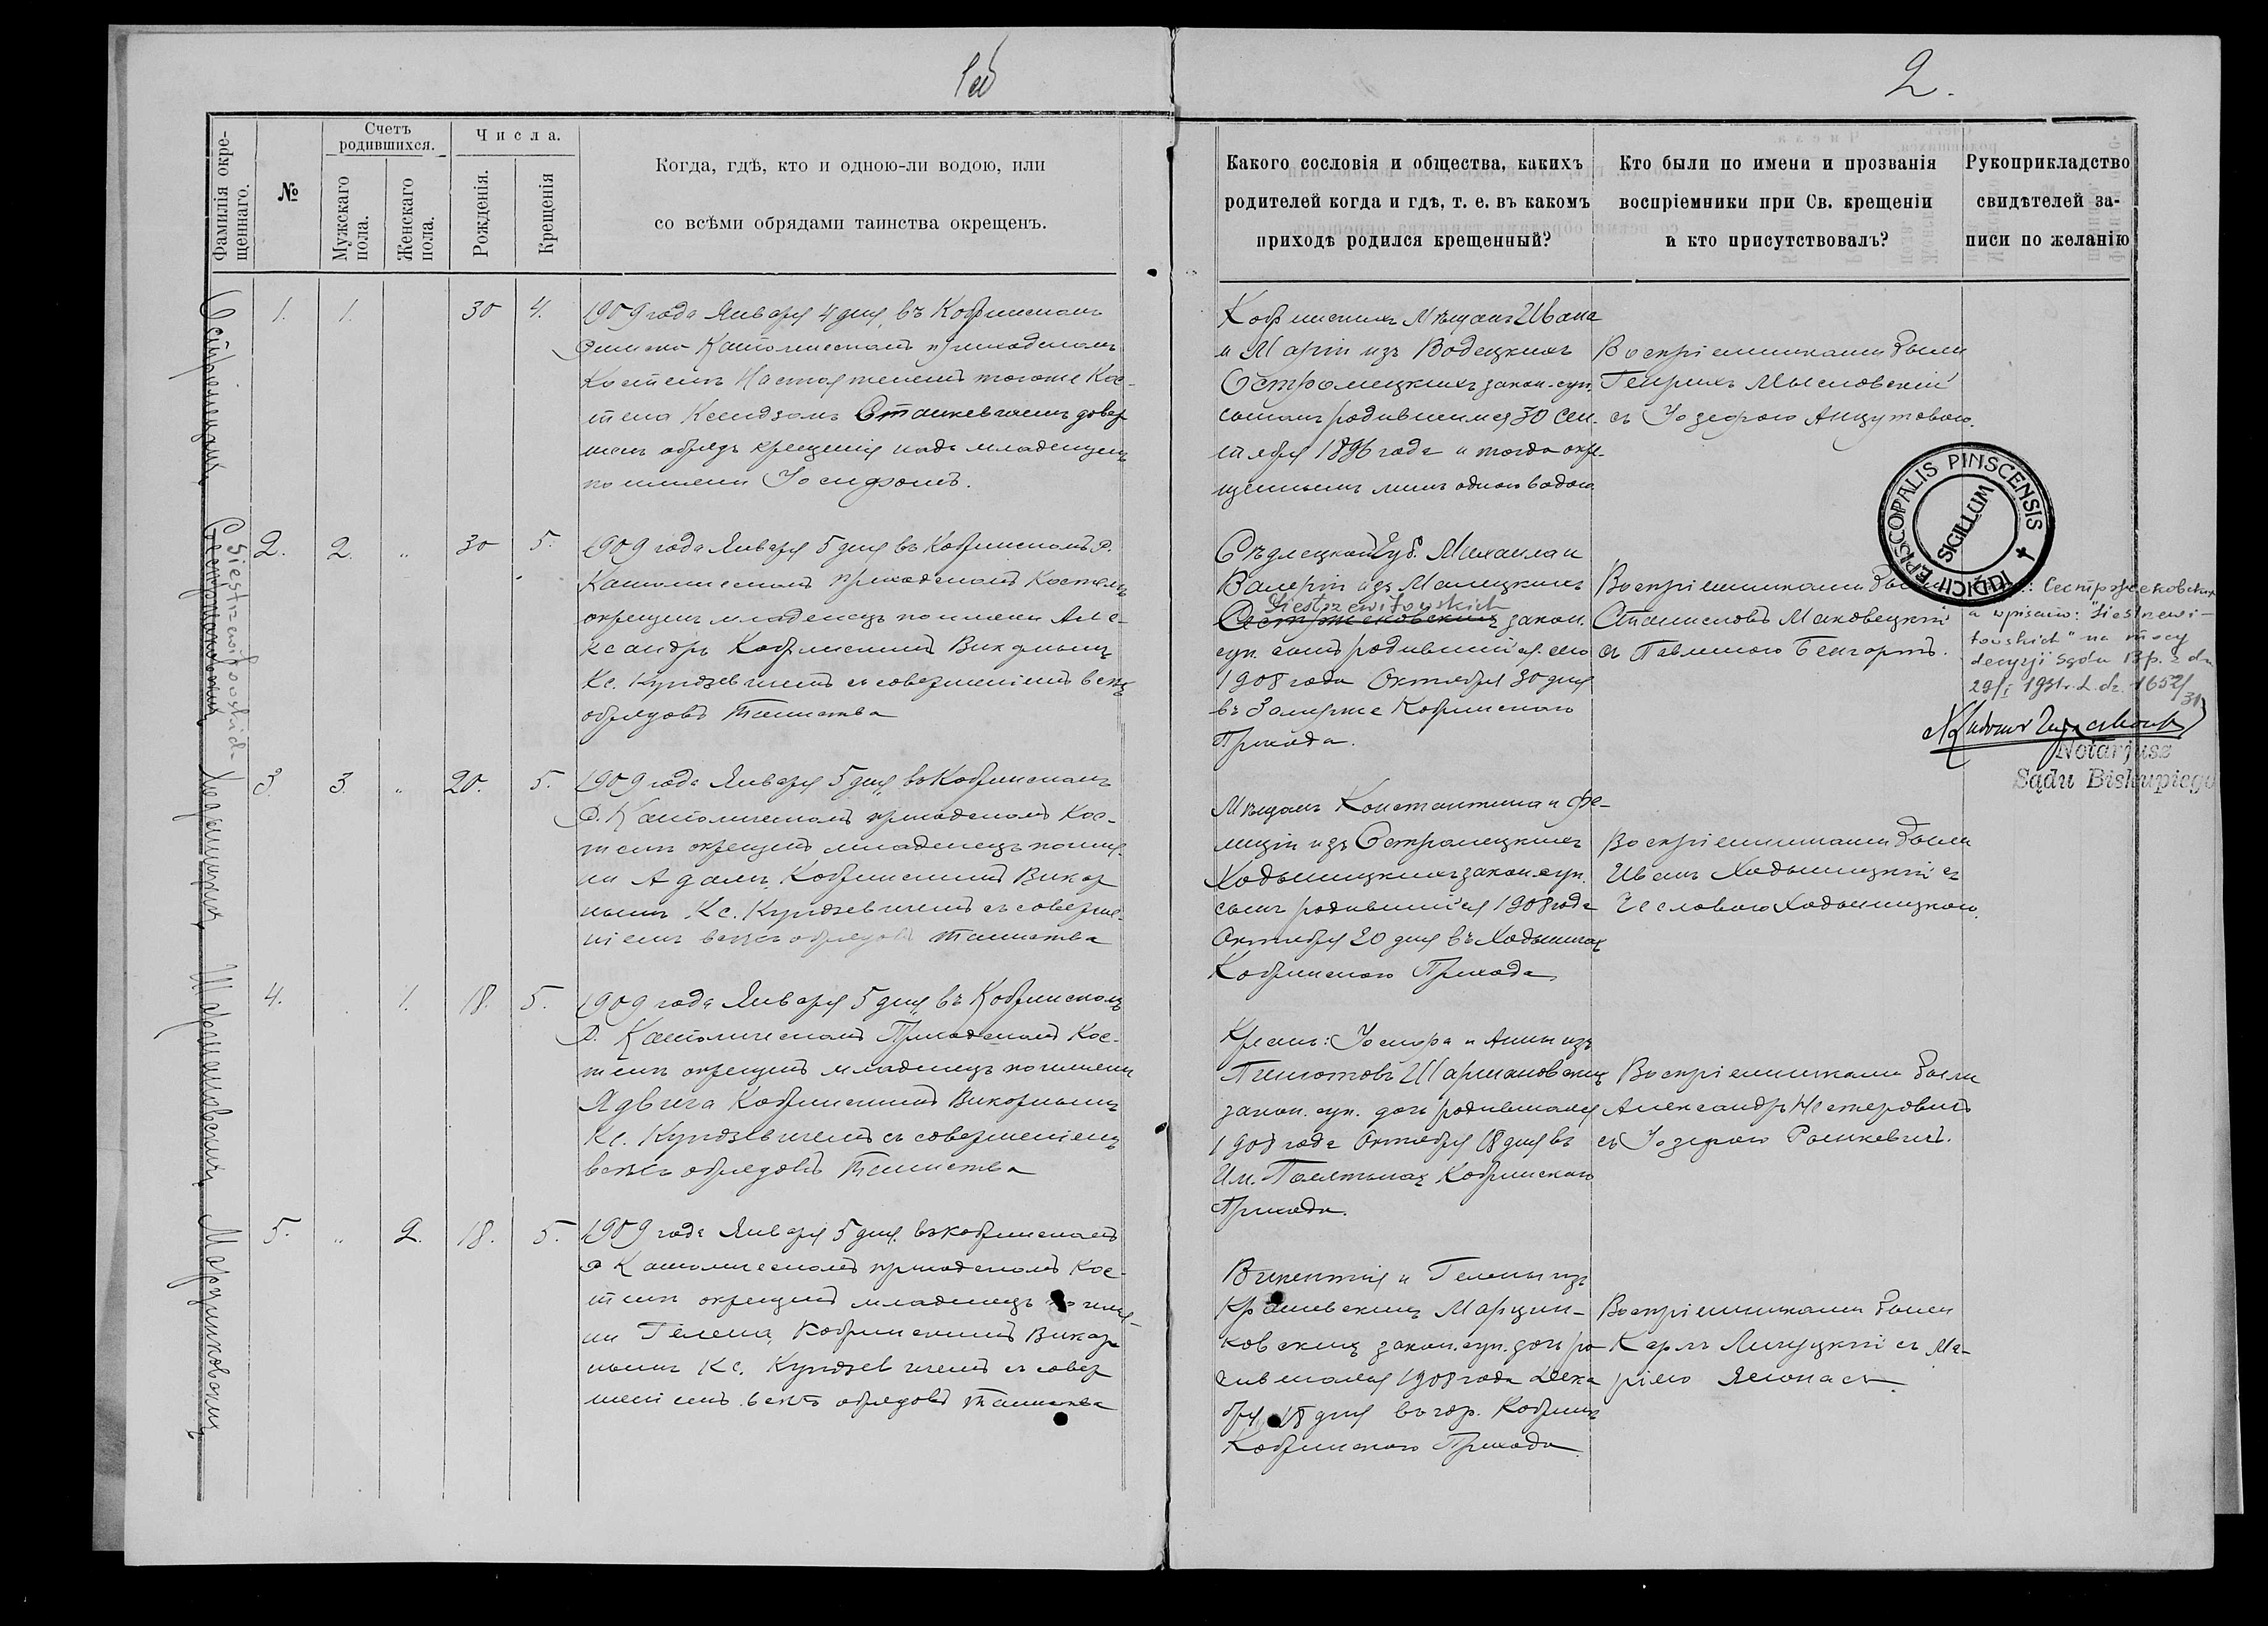 2.
Фамилія окре-
щеннаго.
№
Счетъ
родившихся.
Мужскаго
пола.
Женскаго
пола.
Числа.
Рожденія.
Крещенія
Когда, гдѣ, кто и одною-ли водою, или
со всѣми обрядами таинства окрещенъ.
Какого сословія и общества, какихъ
родителей когда и гдѣ, т. е. въ какомъ
приходѣ родился крещенный?
Кто были по имени и прозванія
воспріемники при Св. крещеніи
и кто присутствовалъ?
Рукоприкладство
свидѣтелей за-
писи по желанію
1. 1. 30 4.
1909 года Января 4 дня, въ Кобринскомъ
Римско Католическомъ приходскомъ
Костелѣ Настоятелемъ тогоже Кос-
тела Ксендзомъ Станкевичемъ довер
шенъ обрядъ крещенія надъ младенцемъ
по имени Іосифомъ.
Кобринскихъ Мѣщанъ Ивана
и Маріи изъ Водецкихъ
Остромецкихъ закон. суп.
сыномъ родившимся 30 Сен-
тября 1896 года и тогда окре-
щеннымъ лишь одною водою.
Воспріемниками были
Генрихъ Мысловскій
съ Іозефою Анцутовою.
Siestrzewitowskich
2. 2. " 30 5.
1909 года Января 5 дня въ Кобринскомъ Р.
Католическомъ приходскомъ Костелѣ
окрещенъ младенецъ по имени Але-
ксандръ Кобринскимъ Викарнымъ
Кс. Кундзевичемъ съ совершеніемъ всѣхъ
обрядовъ Таинства
Сѣдлецкой Губ. Михаила и
Валеріи изъ Малицкихъ
Siestrzewitowskich
закон.
суп. сынъ родившійся сего
1908 года Октября 30 дня
въ Залѣсье Кобринскаго
Прихода.
Воспріемниками были
Станиславъ Маковецкій
съ Павлиною Бенгортъ.
IUDICII EPISCOPALIS PINSCENSIS
SIGILLUM
a wpisano: "Siestrzewi-
towskich" na mocy
decyzji Sądu Bp. z dn
29/I 1931 r. L. dz. 1652/31
Notarjusz
Sądu Biskupiego
3. 3. " 20. 5.
1909 года Января 5 дня, въ Кобринскомъ
Р. Католическомъ приходскомъ Кос-
телѣ окрещенъ младенецъ по име-
ни Адамъ, Кобринскимъ Викар
нымъ Кс. Кундзевичемъ съ соверше-
ніемъ всѣхъ обрядовъ Таинства
Мѣщанъ Константина и Фе-
лиціи изъ Остромецкихъ
Ходыницкихъ закон. суп.
сынъ родившійся 1908 года
Октября 20 дня въ Ходыничахъ
Кобринскаго Прихода.
Воспріемниками были
Иванъ Ходыницкій съ
Чеславою Ходыницкою.
4. 1. 18. 5.
1909 года Января 5 дня, въ Кобринскомъ
Р. Католическомъ Приходскомъ Кос-
телѣ окрещенъ младенецъ по имени
Ядвига Кобринскимъ Викарнымъ
Кс. Кундзевичемъ съ совершеніемъ
всѣхъ обрядовъ Таинства
Крест: Іосифа и Анны изъ
Шармановскихъ
закон. суп. дочь родившаяся
1908 года Октября 18 дня въ
Им. Кобринскаго
Прихода.
Воспріемниками были
Александръ Нестеровичъ
съ Іозефою Рошкевичъ.
5. " 2. 18. 5.
1909 года Января 5 дня, въ Кобринскомъ
Р Католическомъ приходскомъ Кос-
телѣ окрещенъ младенецъ по име-
ни Гелена, Кобринскимъ Викар
нымъ Кс. Кундзевичемъ съ совер
шеніемъ всѣхъ обрядовъ Таинства
Викентія и Гелены изъ
Крашевскихъ Марцин-
ковскихъ закон. суп. дочь ро-
дившаяся 1908 года Дека
бря 18 дня въ гор. Кобринѣ
Кобринскаго Прихода.
Воспріемниками были
Карлъ съ Ма-
ріею